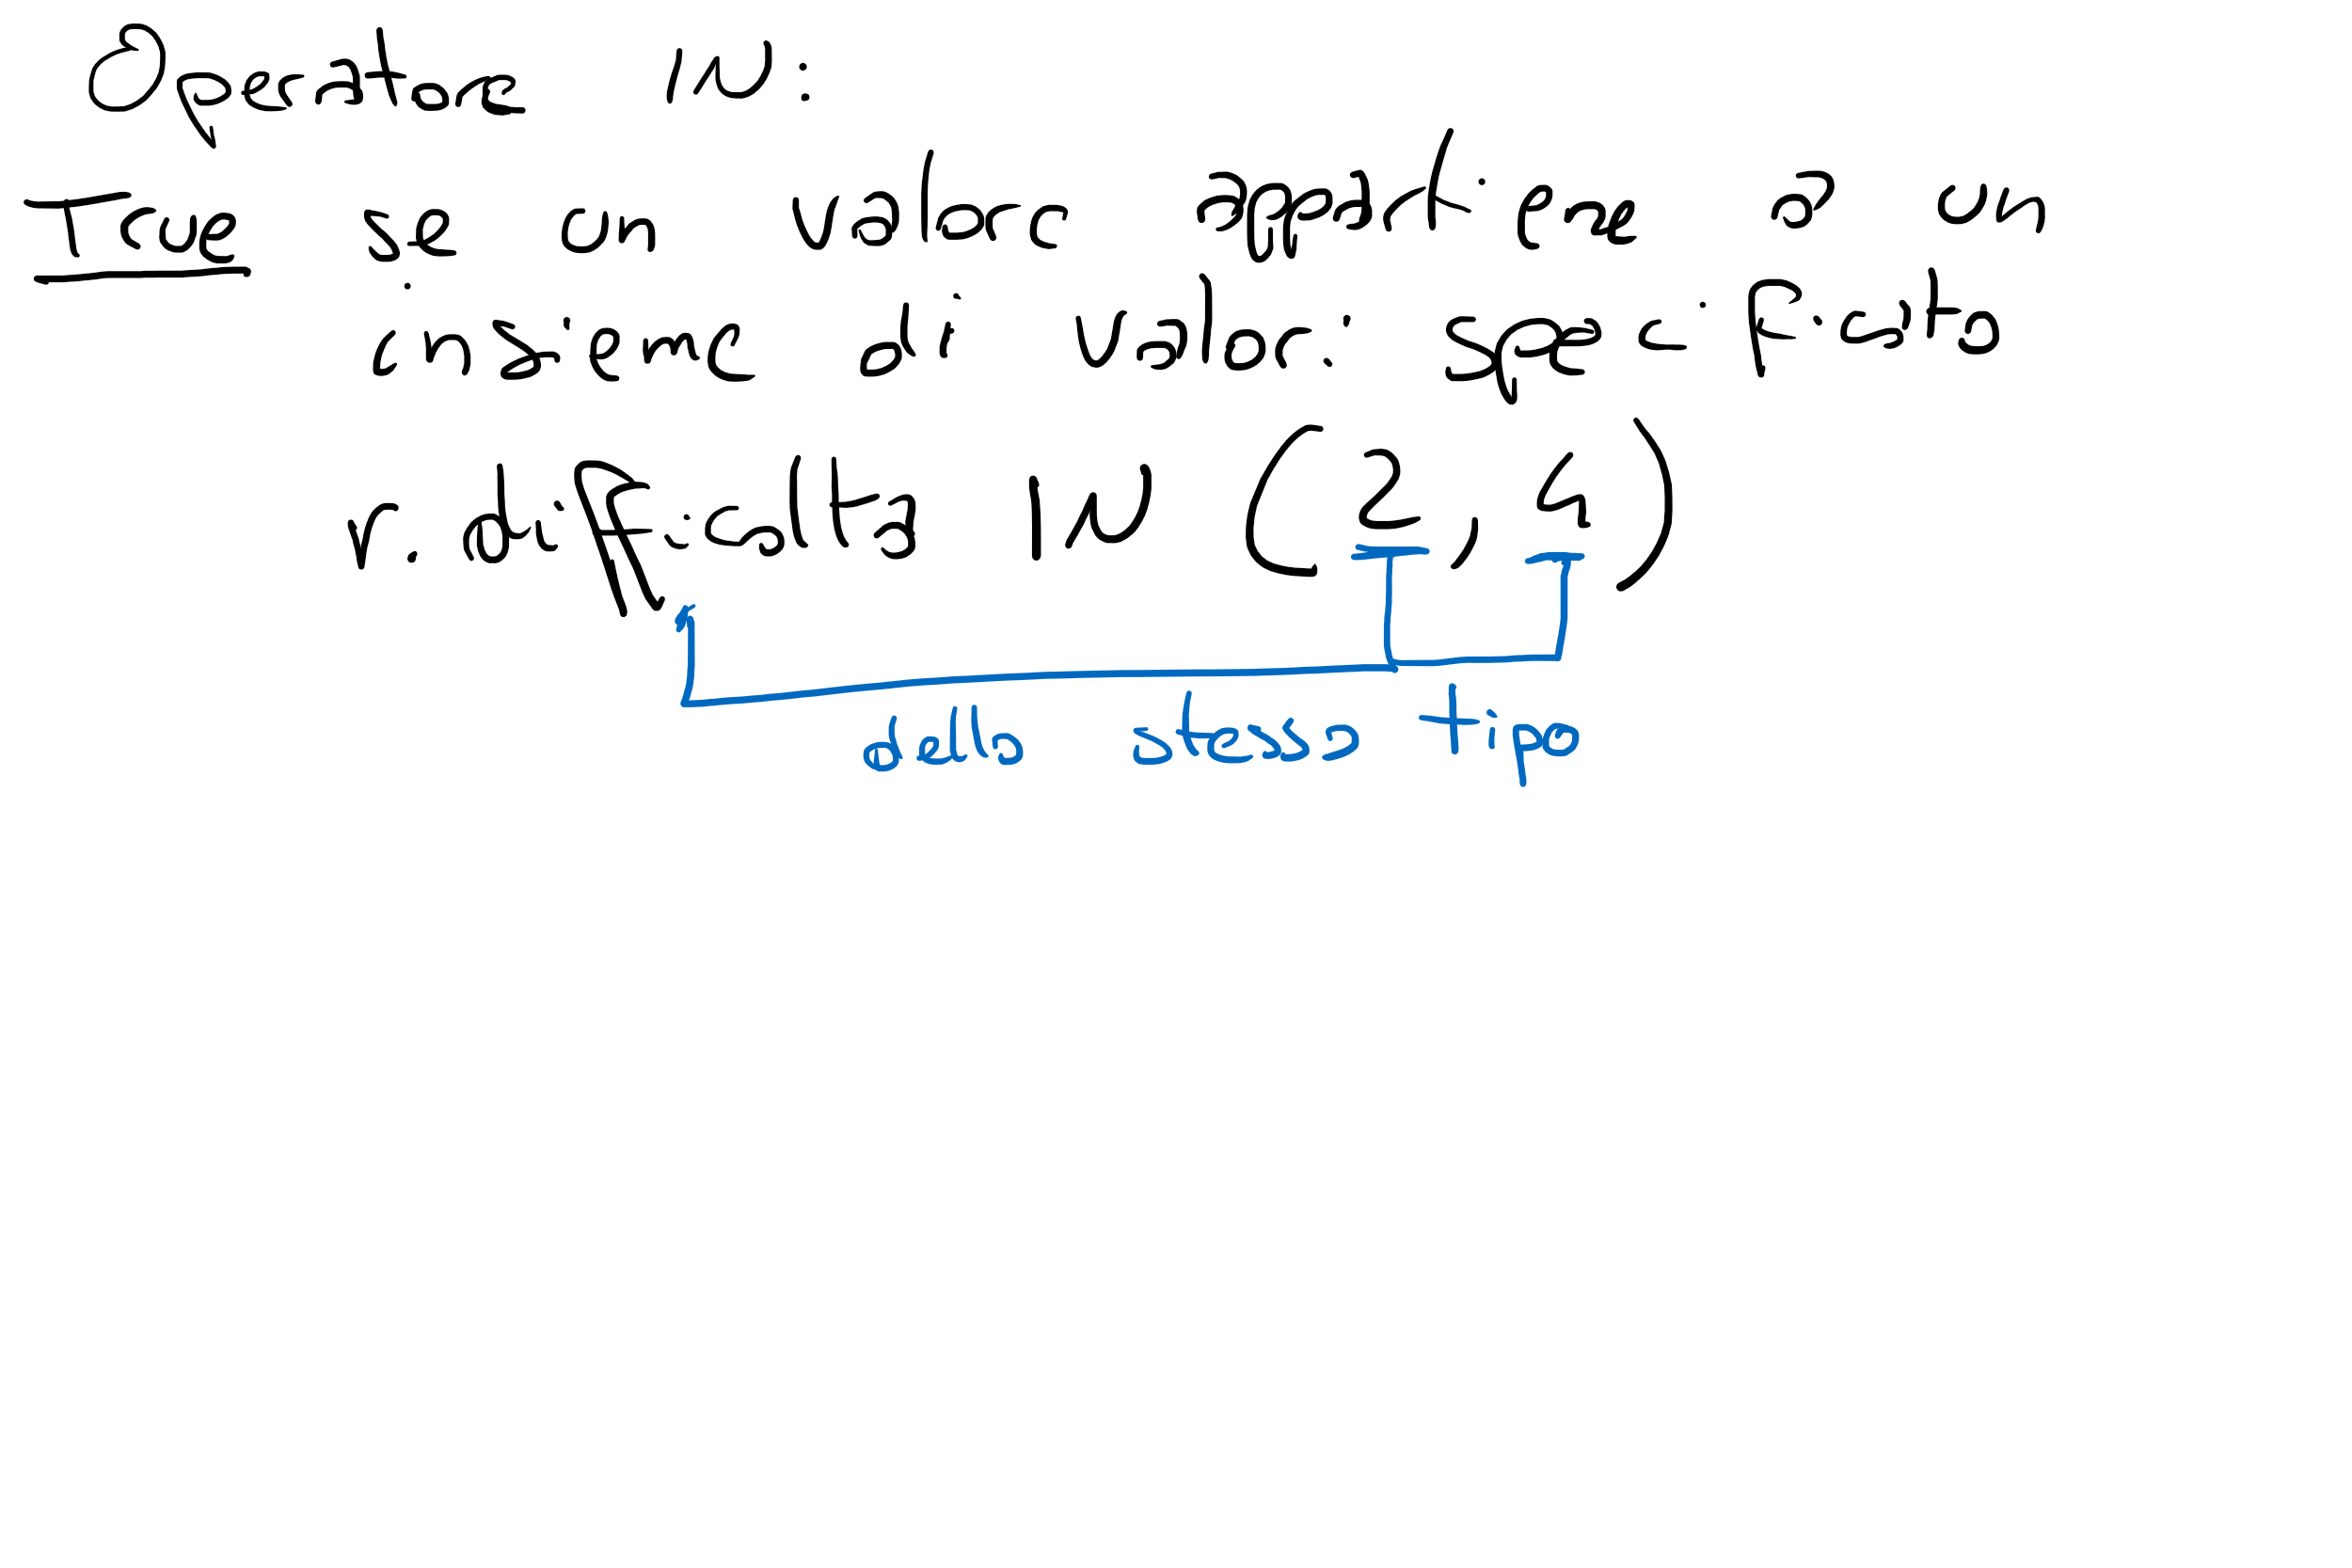 Operatore IN:
True se un valore appartiene a un
insieme di valori specificato
r.difficolta IN (2, 4)
dello stesso tipo